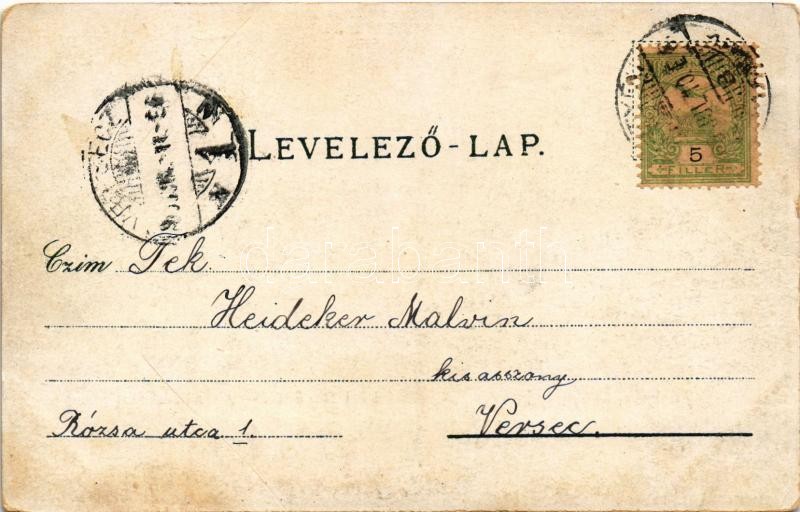 LEVELEZŐ-LAP.
5
FILLÉR
Czim Tek.
Heideker Malvin
kisasszony
Versec.
Rózsa utca 1.